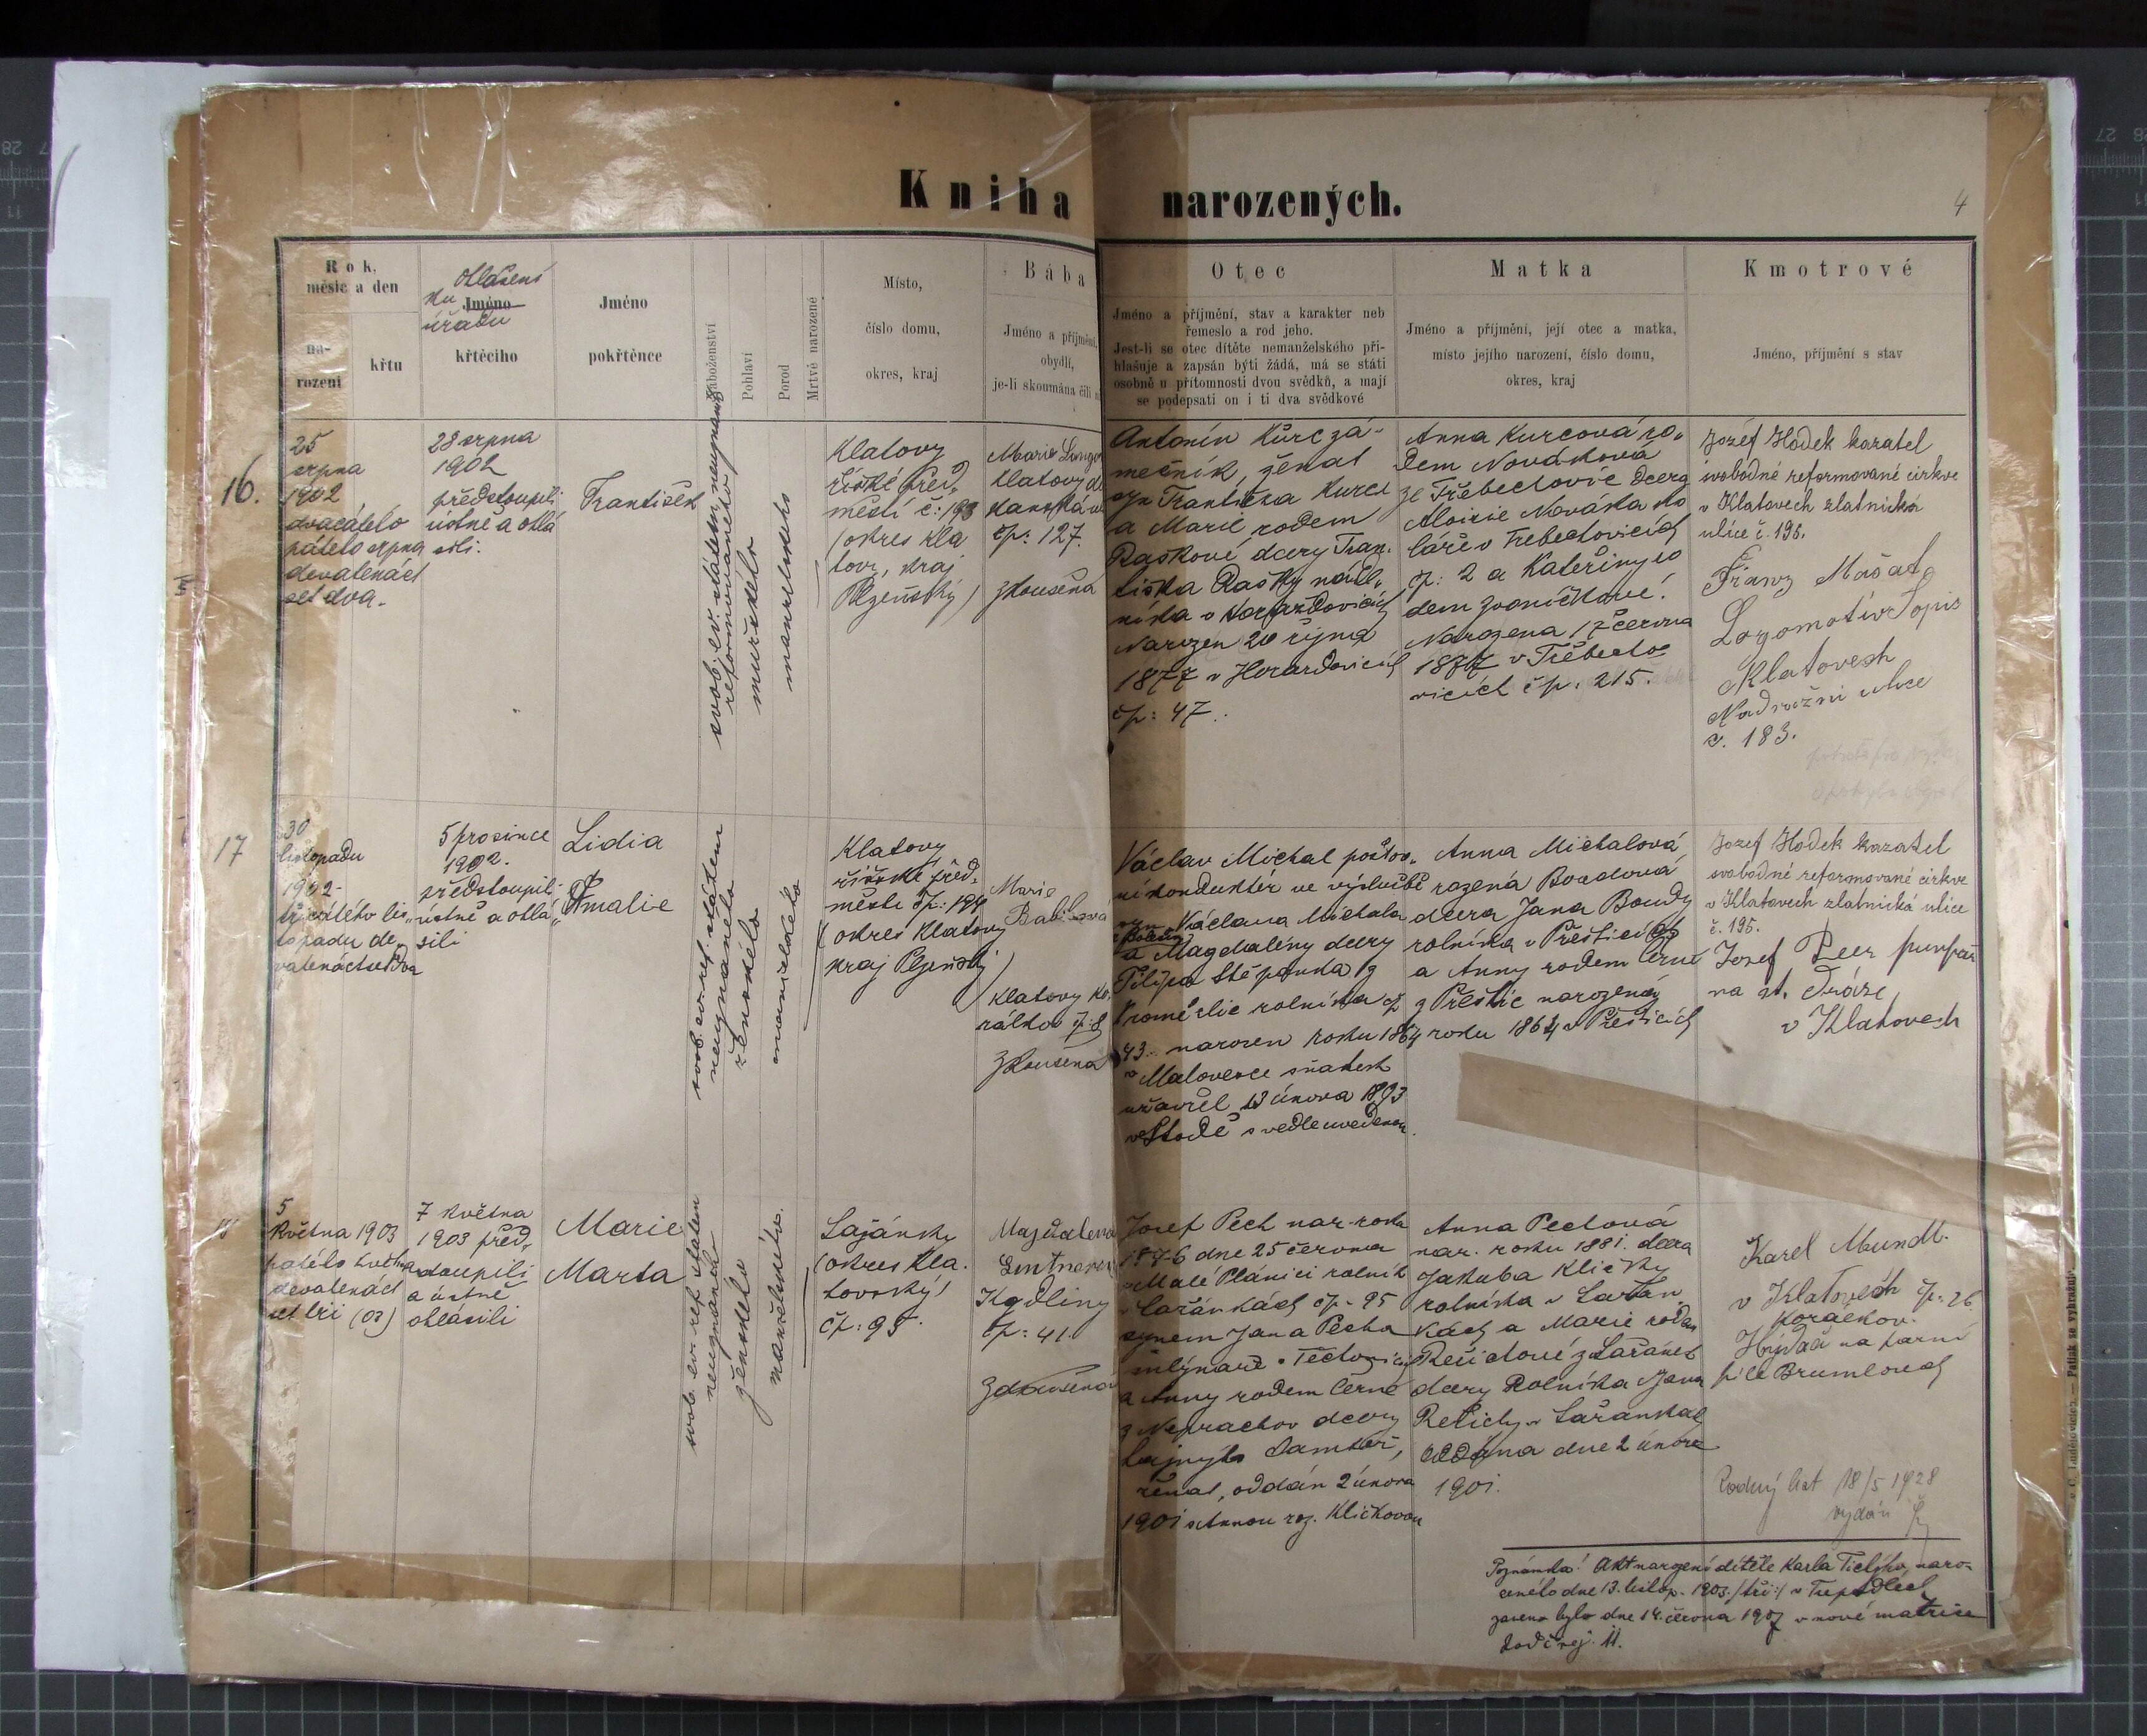 Kniha narozených.
4
Rok, měsíc a den
na-
rození
křtu
Ohlášení
ku Jméno
úřadu
křtěcího
Jméno
pokřtěnce
Náboženství
Pohlaví
Porod
Mrtvě narozené
Místo,
číslo domu,
okres, kraj
Bába
Jméno a příjmení,
obydlí,
je-li zkoumána čili
Otec
Jméno a příjmení, stav a karakter neb
řemeslo a rod jeho.
Jest-li se otec dítěte nemanželského při-
hlašuje a zapsán býti žádá, má se státi
osobně u přítomnosti dvou svědků, a mají
se podepsati on i ti dva svědkové
Matka
Jméno a příjmení, její otec a matka,
místo jejího narození, číslo domu,
okres, kraj
Kmotrové
Jméno, příjmení s stav
16.
25
srpna
1902
dvacátého
pátého srpna
devatenáct
set dva.
28 srpna
1902
předstoupili
ústně a ohlá
sili.
František
svob. ev. státem neuznaného
reformovaného
mužského
manželského
Klatovy
říšské před,
městí č: 193
(okres Kla
tovy, kraj
Plzeňský)
Marie
Klatovy
čp: 127.
Zkoušena
Antonín Kurc zá-
mečník, ženat
syn Františka Kurce
a Marie rodem
Raškové dcery Fran.
tiška Rašky nádl,
níka v Horažďovicích
Narozen 20 října
1877 v Horažďovicích
čp: 47.
Anna Kurcová ro,
dem Nováková
ze Třebechovic dcera
Aloisie Nováka ko
láře v Třebechovicích
čp: 2 a Kateřiny ro
dem Zvoníčkové!
Narozena 17 června
1877 v Třebecho
vicích čp. 215.
Jozef Hodek kazatel
svobodné reformované církve
v Klatovech zlatnická
ulice č. 195.
Franz Mašat
Klatovech
Nadražní ulice
č. 183.
17
30
listopadu
1902-
třicátého lis,
topadu de,
vatenáctsetdva
5 prosince
1902.
předstoupili
ústně a ohlá,
sili
Lidia
Amalie
svob. ev. ref. státem
neuznaného
ženského
manželského
Klatovy
říšské před,
městí čp: 194
(okres Klatovy
kraj Plzeňský)
Marie
Klatovy
Zkoušena
Václav Michal poštov,
ní konduktér ve výslužbě
syn Václava Michala
a Magdalény dcery
Filipa Štěpánka z
rolníka čp
43. narozen roku 1864
v Malovesce sňatek
uzavřel 13 února 1893
ve Stodě s vedle uvedenou.
Anna Michalová
rozená Boudová
dcera Jana Boudy
rolníka v Přešticích
a Anny rodem Černé
z Přeštic narozená
roku 1864 v Přešticích
Jozef Hodek kazatel
svobodné reformované církve
v Klatovech zlatnická ulice
č. 195.
Josef Beer
na st. Dráze
v Klatovech
18
5
Května 1903
pátého května
devatenáct
set tři (03)
7 Května
1903 před,
stoupili
a ústně
ohlásili
Marie
Marta
svob. ev. ref. státem
neuznaného
ženského
manželského.
Lažánky
(okres Kla.
tovský)
čp: 95.
Magdalena
čp: 41.
Zkoušena
Josef Pech nar. roku
1876 dne 25 června
v Malé Plánici rolník
v Lažánkách čp. 95
synem Jana Pecha
mlýnaře v Těchonicích
a Anny rodem Černé
z Neprachov dcery
ženat, oddán 2 února
1901 s Annou roz. Kličkovou
Anna Pechová
nar. roku 1881. dcera
Jakuba Kličky
rolníka v Lažán
kách a Marie rodem
Řešichové z Lažánek
dcery Rolníka Jana
Řešichy v Lažánkách
Oddána dne 2 února
1901.
Karel Mundl.
v Klatovech čp. 26
Hlídač na parní
pile Brumlovech
Rodný list 18/5 1928
vydán
Poznámka! Akt narození dítěte Karla Tichýho, naro-
zeného dne 13. listop. 1903. /tři:/ v
zanesen bylo dne 14. června 1907 v nové matrice
pod č řej. 11.